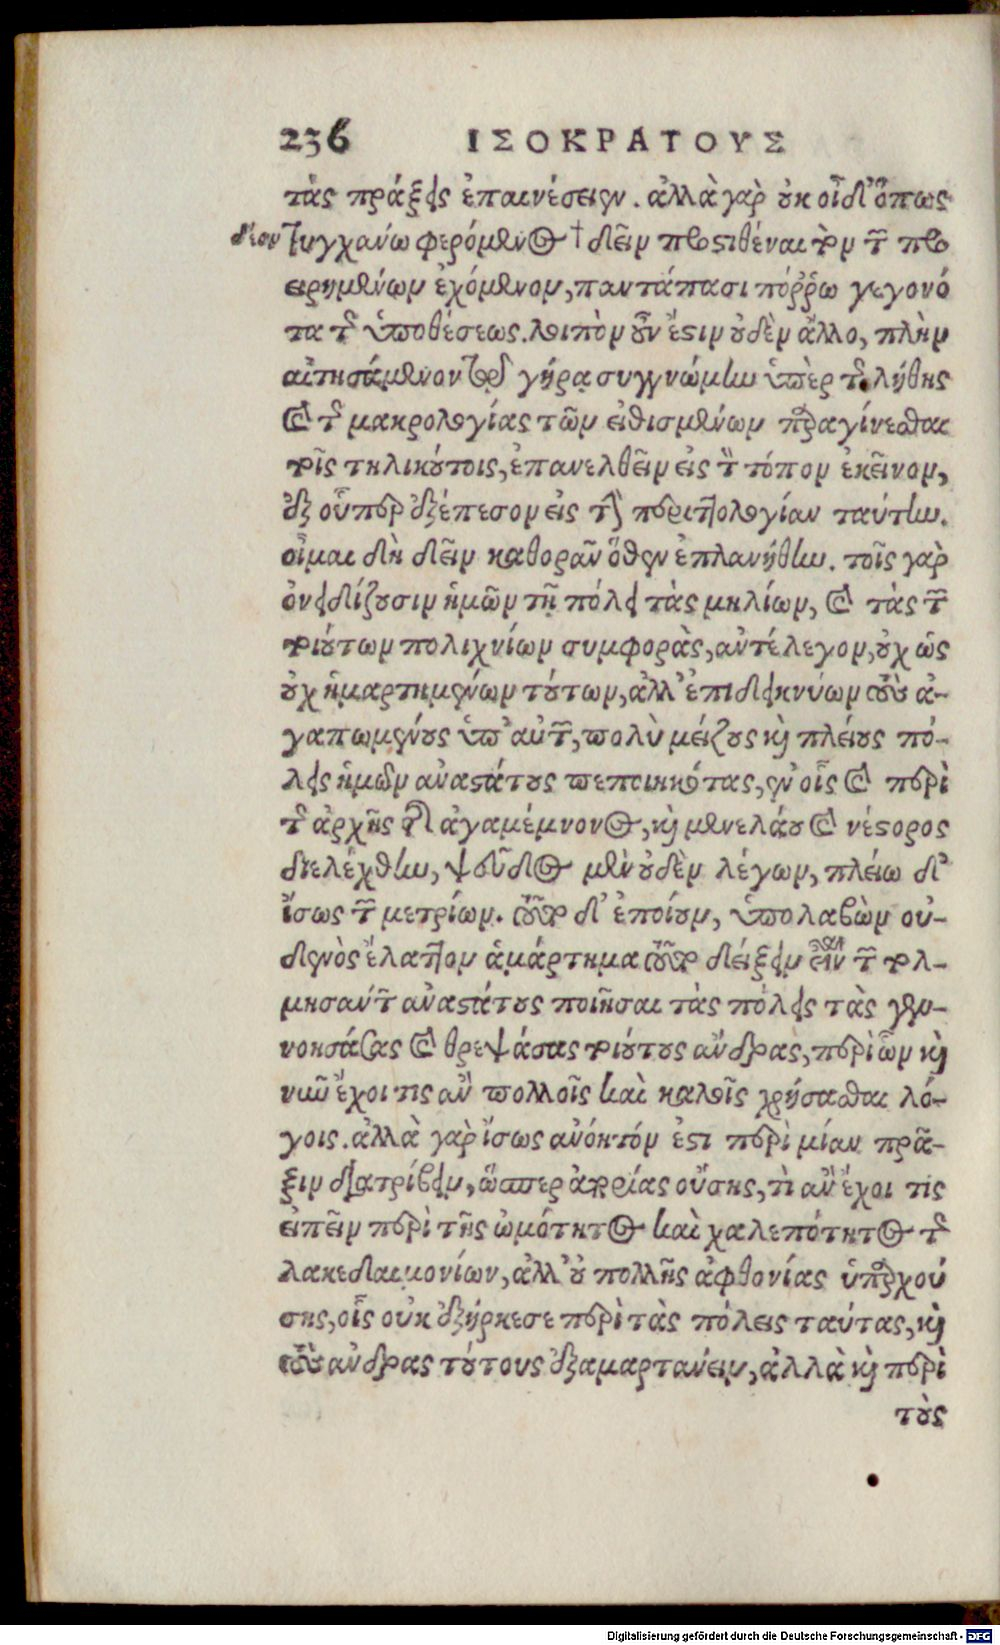 236 ΙΣΟΚΡΑΤΟΥΣ
τὰς πράξεις ἐπαινέσειεν. ἀλλὰ γὰρ οὐκ οἶδ' ὅπως
δέον τυγχάνω φερόμενος † δεῖν προστιθέναι τὸν τῶν προ
ειρημένων ἐχόμενον, παντάπασι πόῤῥω γεγονό
τα τῆς ὑποθέσεως. λοιπὸν οὖν ἐστιν οὐδὲν ἄλλο, πλὴν
αἰτησάμενον τῷ γήρᾳ συγγνώμην ὑπὲρ τῆς λήθης
καὶ τῆς μακρολογίας τῶν εἰθισμένων παραγίνεσθαι
τοῖς τηλικούτοις, ἐπανελθεῖν εἰς τὸν τόπον ἐκεῖνον,
ἐξ οὗπερ ἐξέπεσον εἰς τὴν περιττολογίαν ταύτην.
οἶμαι δὴ δεῖν καθορᾶν ὅθεν ἐπλανήθην. τοῖς γὰρ
ὀνειδίζουσιν ἡμῶν τῇ πόλει τὰς μηλίων, καὶ τὰς τῶν
τοιούτων πολιχνίων συμφορὰς, ἀντέλεγον, οὐχ ὡς
οὐχ ἡμαρτημένων τούτων, ἀλλ' ἐπιδεικνύων τοὺς ἀ-
γαπωμένους ὑπ' αὐτῶν, πολὺ μείζους καὶ πλείους πό-
λεις ἡμῶν ἀναστάτους πεποιηκότας, ἐν οἷς καὶ περὶ
τῆς ἀρχῆς τῆς ἀγαμέμνονος, καὶ μενελάου καὶ νέστορος
διελέχθην, ψεῦδος μὲν οὐδὲν λέγων, πλείω δ'
ἴσως τῶν μετρίων. τοῦτο δ' ἐποίουν, ὑπολαβὼν οὐ-
δενὸς ἔλαττον ἁμάρτημα τοῦτο δείξειν εἶναι τῶν τολ-
μησάντων ἀναστάτους ποιῆσαι τὰς πόλεις τὰς γεν-
νησάσας καὶ θρεψάσας τοιούτους ἄνδρας, περὶ ὧν καὶ
νῦν ἔχοι τις ἂν πολλοῖς καὶ καλοῖς χρήσασθαι λό-
γοις. ἀλλὰ γὰρ ἴσως ἀνόητόν ἐστι περὶ μίαν πρᾶ-
ξιν διατρίβειν, ὥσπερ ἀπορίας οὔσης, τὶ ἂν ἔχοι τὶς
εἰπεῖν περὶ τῆς ὠμότητος καὶ χαλεπότητος τῆς
λακεδαιμονίων, ἀλλ' οὐ πολλῆς ἀφθονίας ὑπαρχού
σης, οἷς οὐκ ἐξήρκεσε περὶ τὰς πόλεις ταύτας, καὶ
τοὺς ἄνδρας τούτους ἐξαμαρτάνειν, ἀλλὰ καὶ περὶ
τοὺς
Digitalisierung gefördert durch die Deutsche Forschungsgemeinschaft - DFG